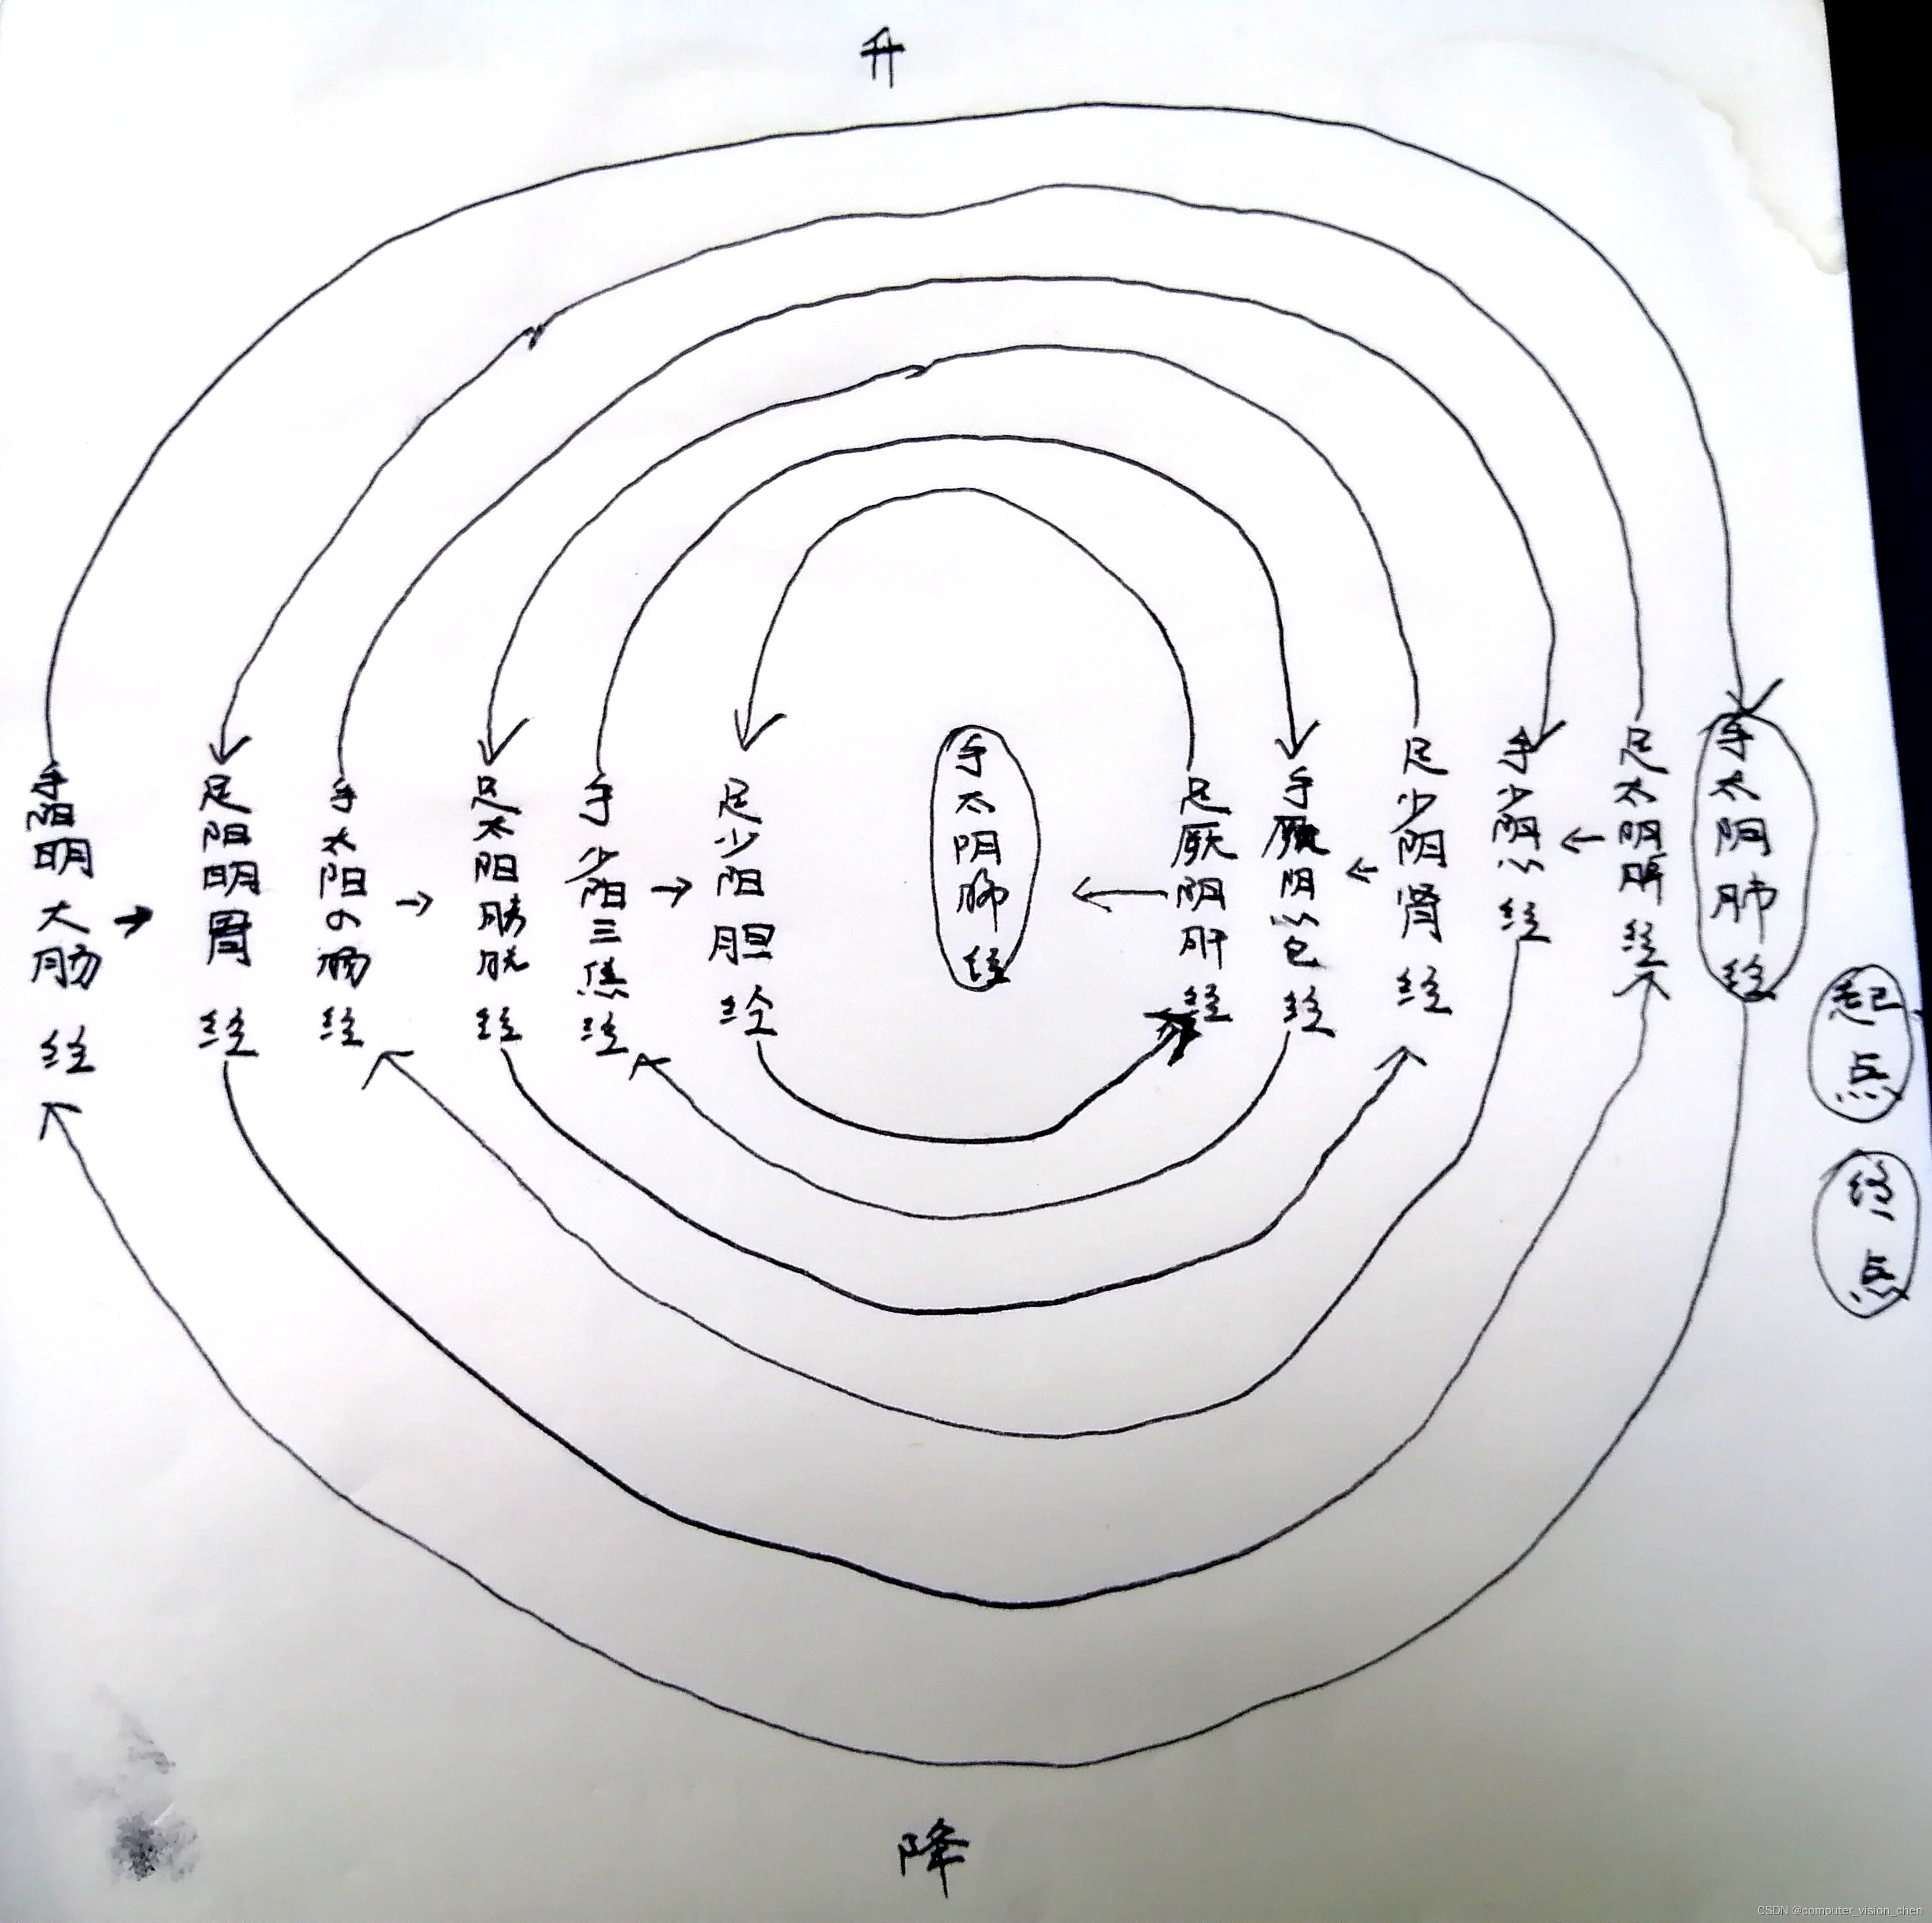 升
手阳明大肠经
→
足阳明胃经
手太阳小肠经
→
足太阳膀胱经
手少阳三焦经
→
足少阳胆经
手太阴肺经
←
足厥阴肝经
手厥阴心包经
←
足少阴肾经
手少阴心经
←
足太阴脾经
手太阴肺经
起点
终点
降
CSDN @computer_vision_chen